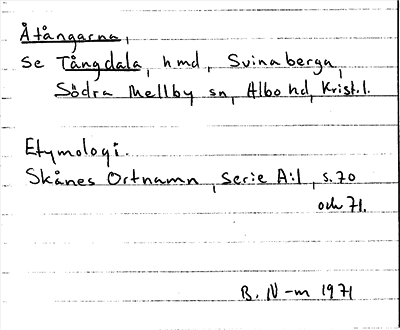 Åtångarna,
se Tångdala, hmd, Svinaberga,
Södra Mellby sn, Albo hd, Krist.l.
Etymologi.
Skånes Ortnamn, serie A:1, s.70
och 71.
B. N-m 1971